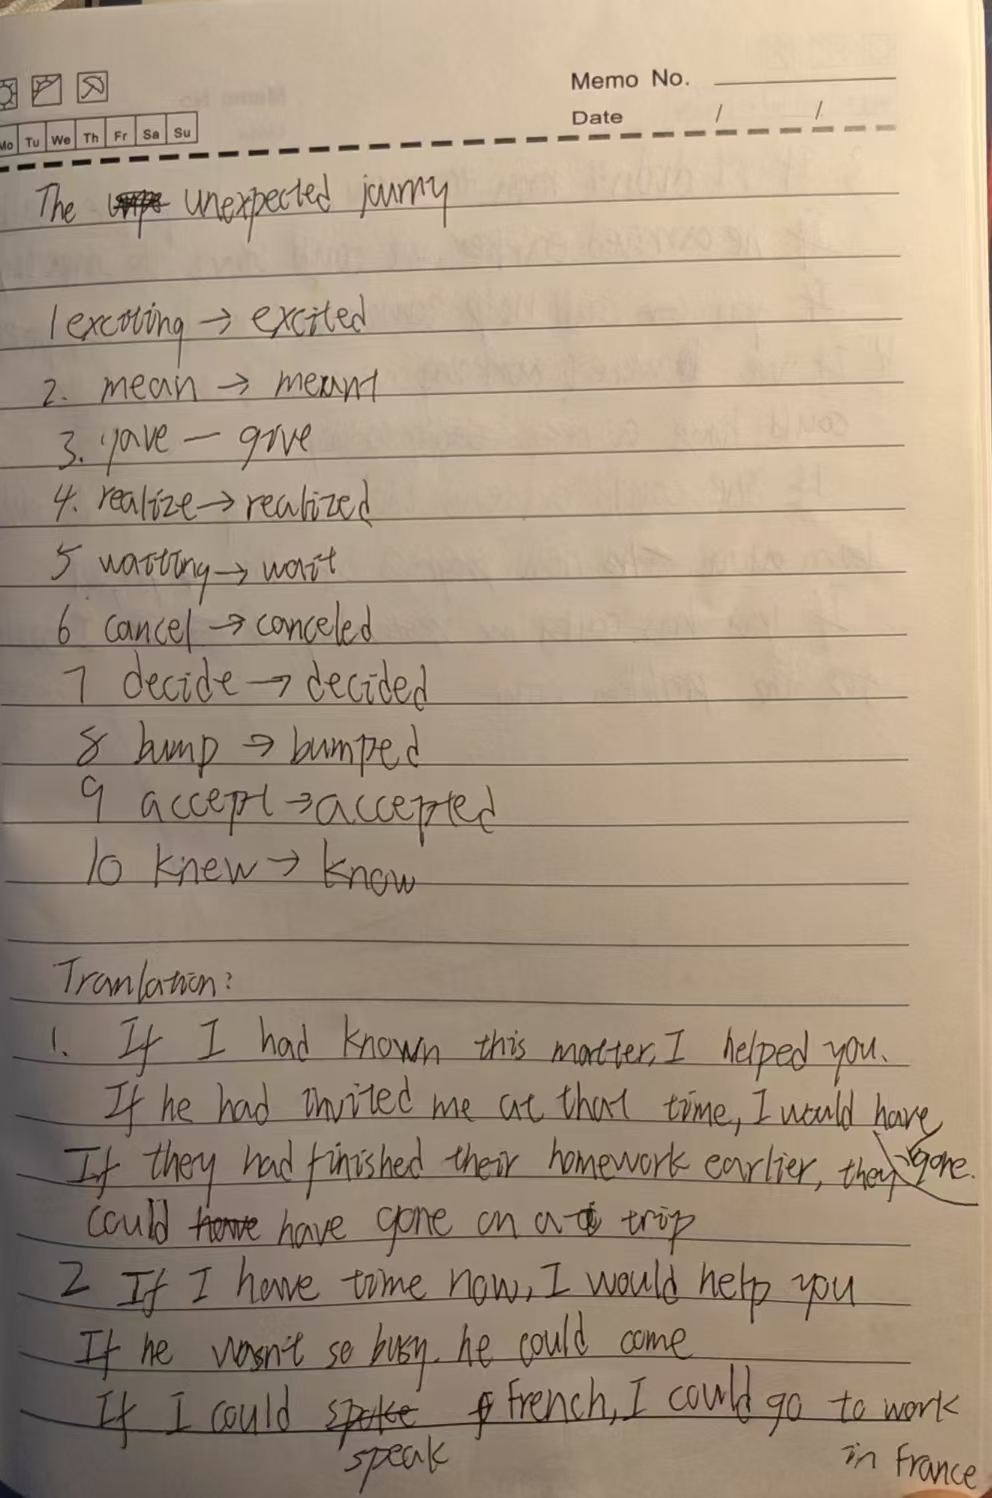 Memo No.
Date / /
Mo Tu We Th Fr Sa Su
The unexpected journy
1 exciting → excited
2. mean → meant
3. gave — give
4. realize → realized
5 waiting → wait
6 cancel → canceled
7 decide → decided
8 bump → bumped
9 accept → accepted
10 knew → know
Tranlation:
1. If I had known this matter, I helped you.
If he had invited me at that time, I would have gone.
If they had finished their homework earlier, they
could have gone on a trip
2 If I have time now, I would help you
If he wasn't so busy. he could come
If I could speak French, I could go to work
in France